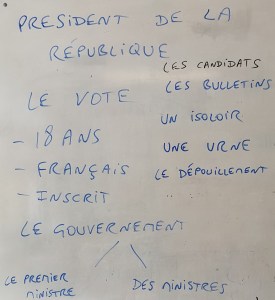 PRESIDENT DE LA
RÉPUBLIQUE
LES CANDIDATS
LE VOTE
LES BULLETINS
- 18 ANS
UN ISOLOIR
- FRANÇAIS
UNE URNE
- INSCRIT
LE DÉPOUILLEMENT
LE GOUVERNEMENT
LE PREMIER
MINISTRE
DES MINISTRES